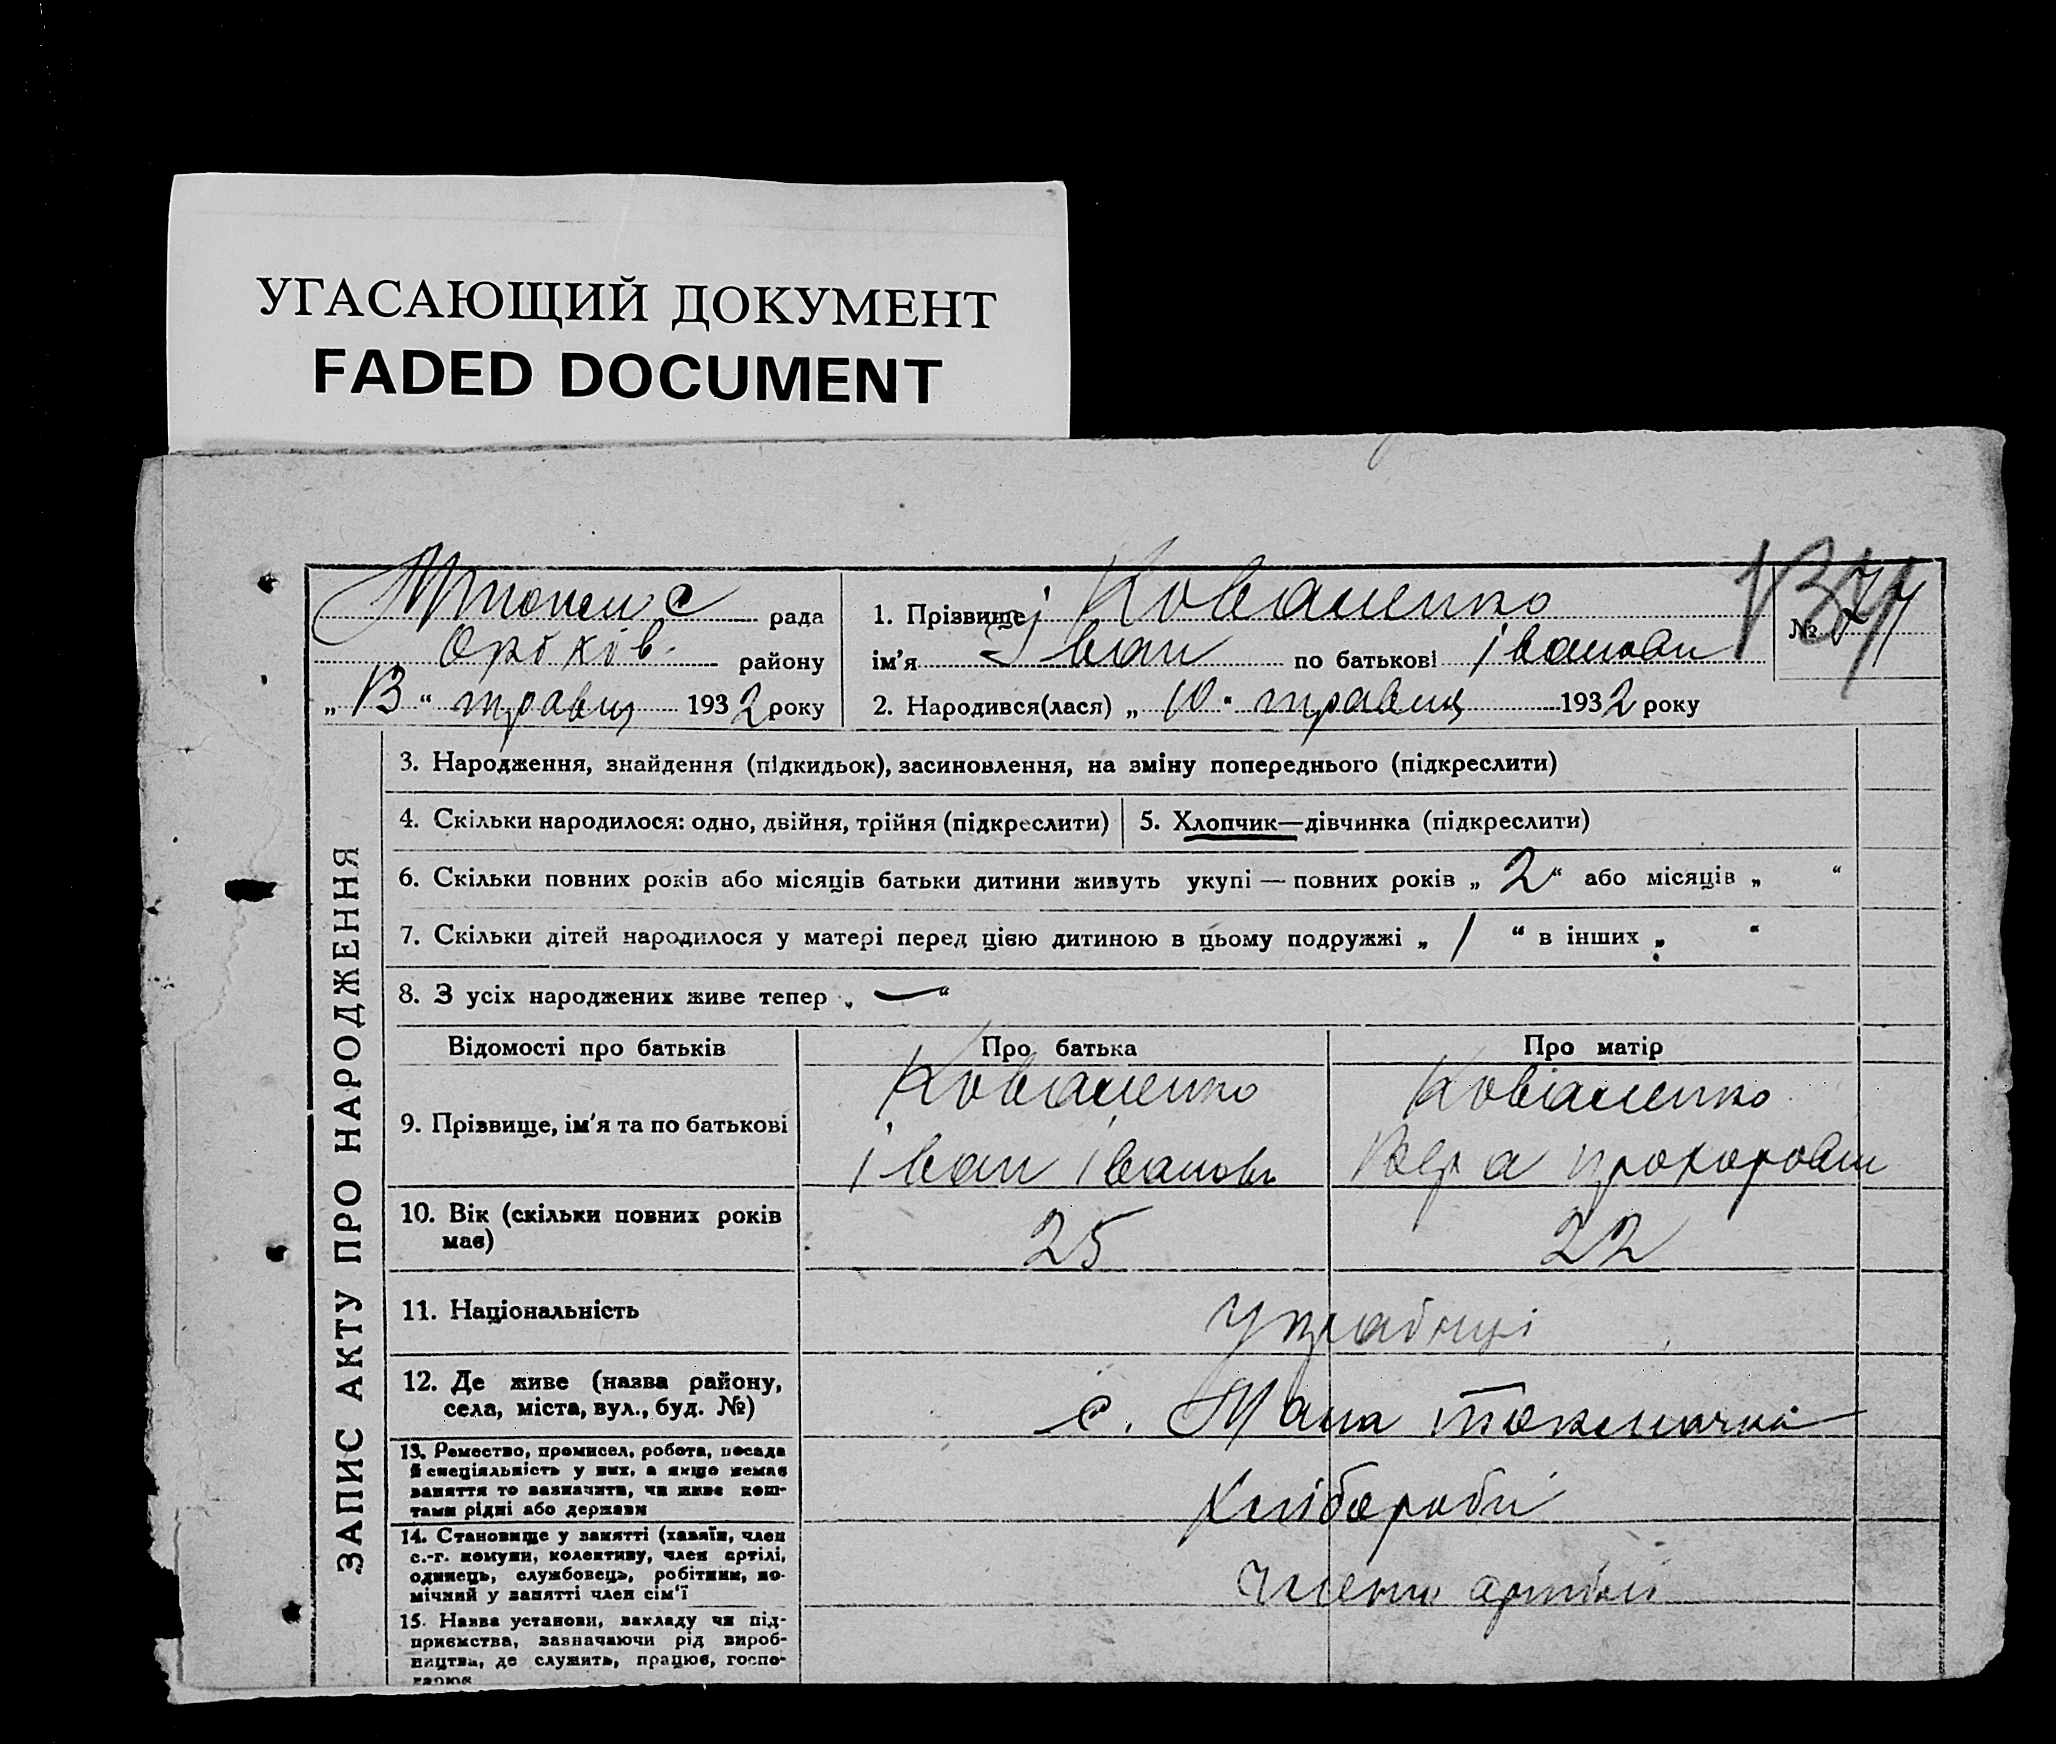 УГАСАЮЩИЙ ДОКУМЕНТ
FADED DOCUMENT
рада
Оріхів. району
„ 13 “ травця 1932 року
1. Прізвище Коваленко
ім’я Іван по батькові іванови
№ 77
2. Народився(лася) „ 10 “ травця 1932 року
ЗАПИС АКТУ ПРО НАРОДЖЕННЯ
3. Народження, знайдення (підкидьок), засиновлення, на зміну попереднього (підкреслити)
4. Скільки народилося: одно, двійня, трійня (підкреслити)
5. Хлопчик—дівчинка (підкреслити)
6. Скільки повних років або місяців батьки дитини живуть укупі — повних років „ 2 “ або місяців „ “
7. Скільки дітей народилося у матері перед цією дитиною в цьому подружжі „ 1 “ в інших „ “
8. З усіх народжених живе тепер „ — “
Відомості про батьків
Про батька
Про матір
9. Прізвище, ім’я та по батькові
Коваленко
іван іванов
Коваленко
Вера прохоровн
10. Вік (скільки повних років
має)
25
22
11. Національність
Українці
12. Де живе (назва району,
села, міста, вул., буд. №)
с. Мала Токмачка
13. Ремество, промисел, робота, посада
й спеціяльність у них, а якщо немає
заняття то зазначити, чи живе кош-
тами рідні або держави
Хлібароби
14. Становище у занятті (хазяїн, член
с.-г. комуни, колективу, член артілі,
одинець, службовець, робітник, по-
мічний у занятті член сім’ї
члени артілі
15. Назва установи, закладу чи під-
приємства, зазначаючи рід вироб-
ництва, де служить, працює, госпо-
дарює